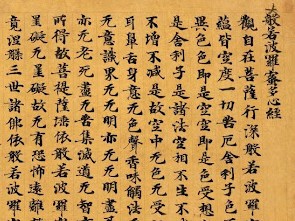 般若波羅蜜多心經
觀自在菩薩行深般若波羅
蘊皆空度一切苦厄舍利子色
異色色即是空空即是色受想
是舍利子是諸法空相不生不
不增不減是故空中无色无受
耳鼻舌身意无色聲香味觸法
无意識界无无明亦无无明盡
亦无老死盡无苦集滅道无智
所得故菩提薩埵依般若波羅
罣礙无罣礙故无有恐怖遠離
竟涅槃三世諸佛依般若波羅